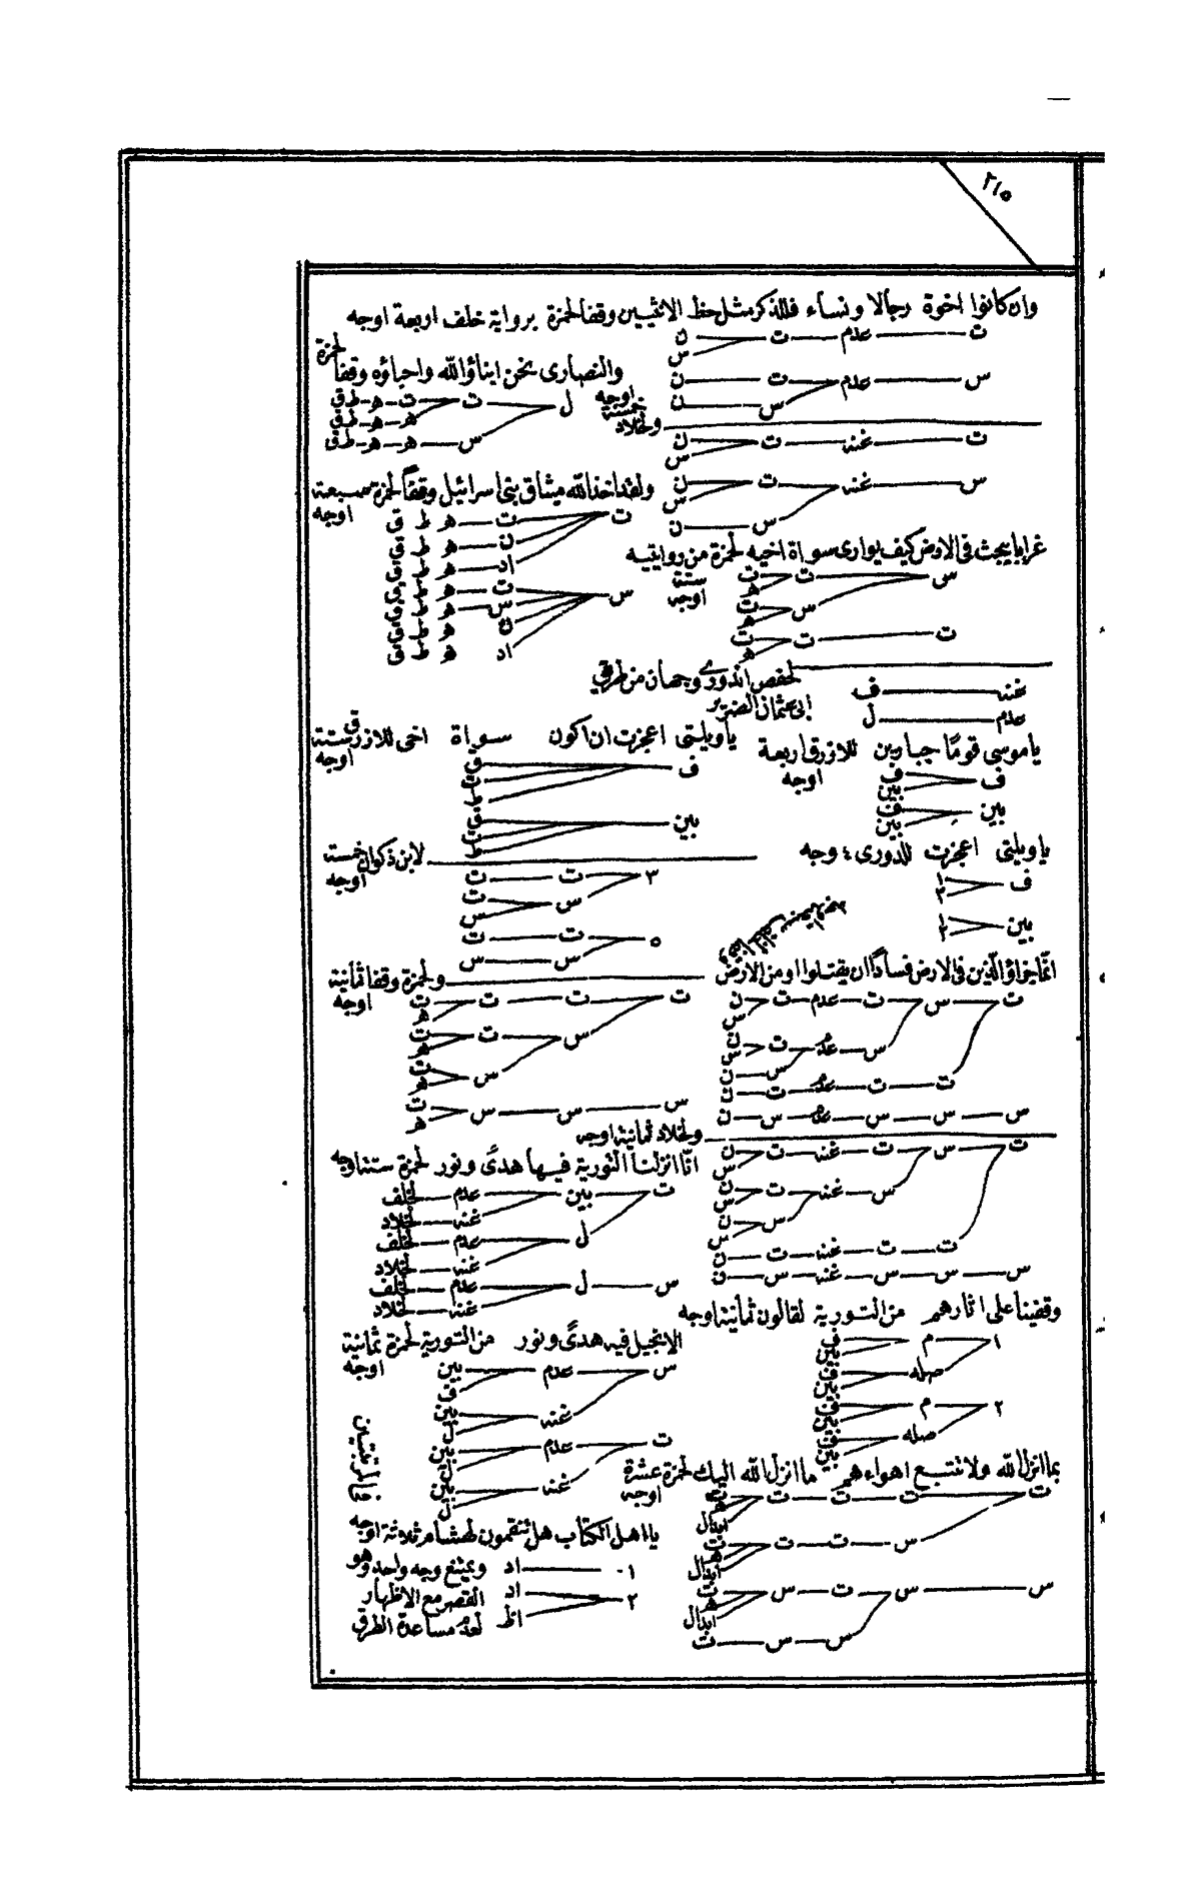 ٢١٥
وان كانوا اخوة رجالا ونساء فللذكر مثل حظ الانثيين وقفا لحمزة برواية خلف اربعة اوجه
ت عدم ت ن
س
س عدم ت ن
س ن
ولخلاد خمسة اوجه
ت غنه ت ن
س
س غنه ت ن
س
س ن
والنصارى نحن ابناؤا الله واحباؤه وقفا لحمزة
ل ت ت - ه - ط ق
ه - ه - ط ق
س ه - ه - ط ق
ولقد اخذ الله ميثاق بنى اسرائيل وقفا لحمزة سبعة اوجه
ت ت ه ط ق
ن ه ط ق
اد ه ط ق
س ت ه ط ق
س ه ط ق
ن ه ط ق
اد ه ط ق
غرابا يبحث فى الارض كيف يوارى سواة اخيه لحمزة من روايتيه ستة اوجه
س ت ت
ه
س ت
ه
ت ت ت
ه
لحفص الدورى وجهان من طريقى ابى عثمان الضرير
غنه ف
عدم ل
ياموسى قوما جبارين للازرق اربعة اوجه
ف ف
بين
بين ف
بين
ياويلتى اعجزت ان اكون سواة اخى للازرق ستة اوجه
ف ق
ت
ط
بين ق
ت
ط
ياويلتى اعجزت للدورى ٤ وجه
ف ١
٢
بين ١
٢
لابن ذكوان خمسة اوجه
٣ ت ت
س ت
س
٥ ت ت
س س
انما جزاؤا الذين فى الارض فسادا ان يقتلوا او من الارض
ت س ت عدم ت ن
س
س عدم ت ن
س
س ن
ت ت عدم ت ن
س س س عدم س ن
ولحمزة وقفا ثمانية اوجه
ت ت ت ت
ه
س ت ت
ه
س ت
ه
س س س ت
ه
ولخلاد ثمانية اوجه
ت س ت غنه ت ن
س
س غنه ت ن
س
س ن
س
ت ت غنه ت ن
س س س غنه س ن
انا انزلنا التورية فيها هدى ونور لحمزة ستة اوجه
ت بين عدم لخلف
غنه لخلاد
ل عدم لخلف
غنه لخلاد
س ل عدم لخلف
غنه لخلاد
وقفينا على اثارهم من التورية لقالون ثمانية اوجه
١ م ف
بين
صله ف
بين
٢ م ف
بين
صله ف
بين
الانجيل فيه هدى ونور من التورية لحمزة ثمانية اوجه
س عدم بين
ف
غنه بين
ل
ت عدم بين
ل
غنه بين
ل
بما انزل الله ولا تتبع اهواءهم ما انزل الله اليك لحمزة عشرة اوجه
ت ت ت ت ت
ه
ابدال
س ت ت ت
ه
ابدال
س س ت س ت
ه
ابدال
س س ت
يا اهل الكتاب هل تنقمون لهشام ثلاثة اوجه
١ اد
٢ اد
اظ
ويمتنع وجه واحد وهو
القصر مع الاظهار
لعدم مساعدة الطرق